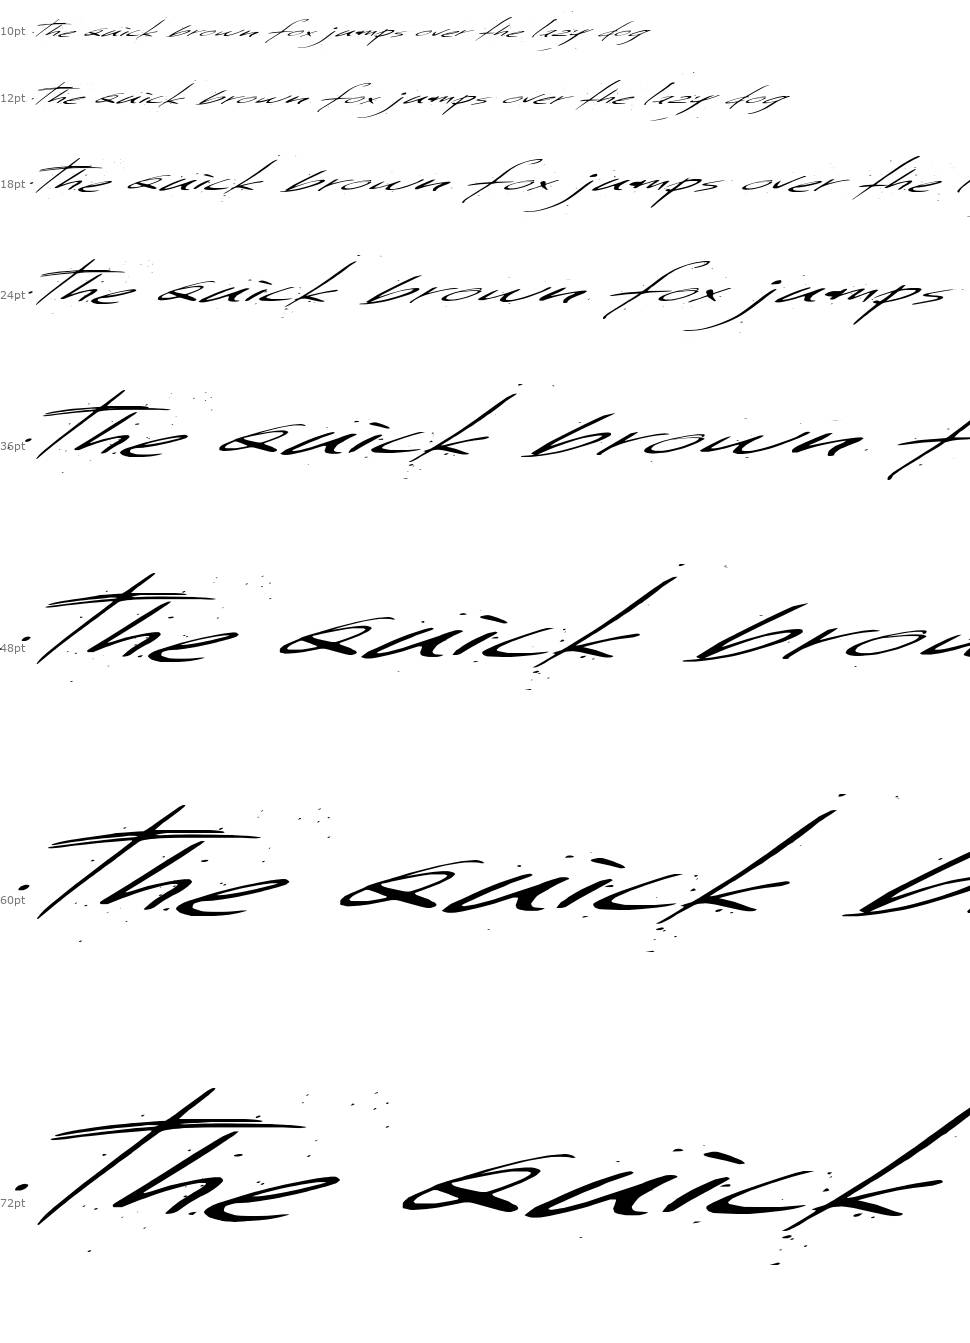 10pt the quick brown fox jumps over the lazy dog
12pt the quick brown fox jumps over the lazy dog
18pt the quick brown fox jumps over the l
24pt the quick brown fox jumps
36pt the quick brown f
48pt the quick brow
60pt the quick b
72pt the quick